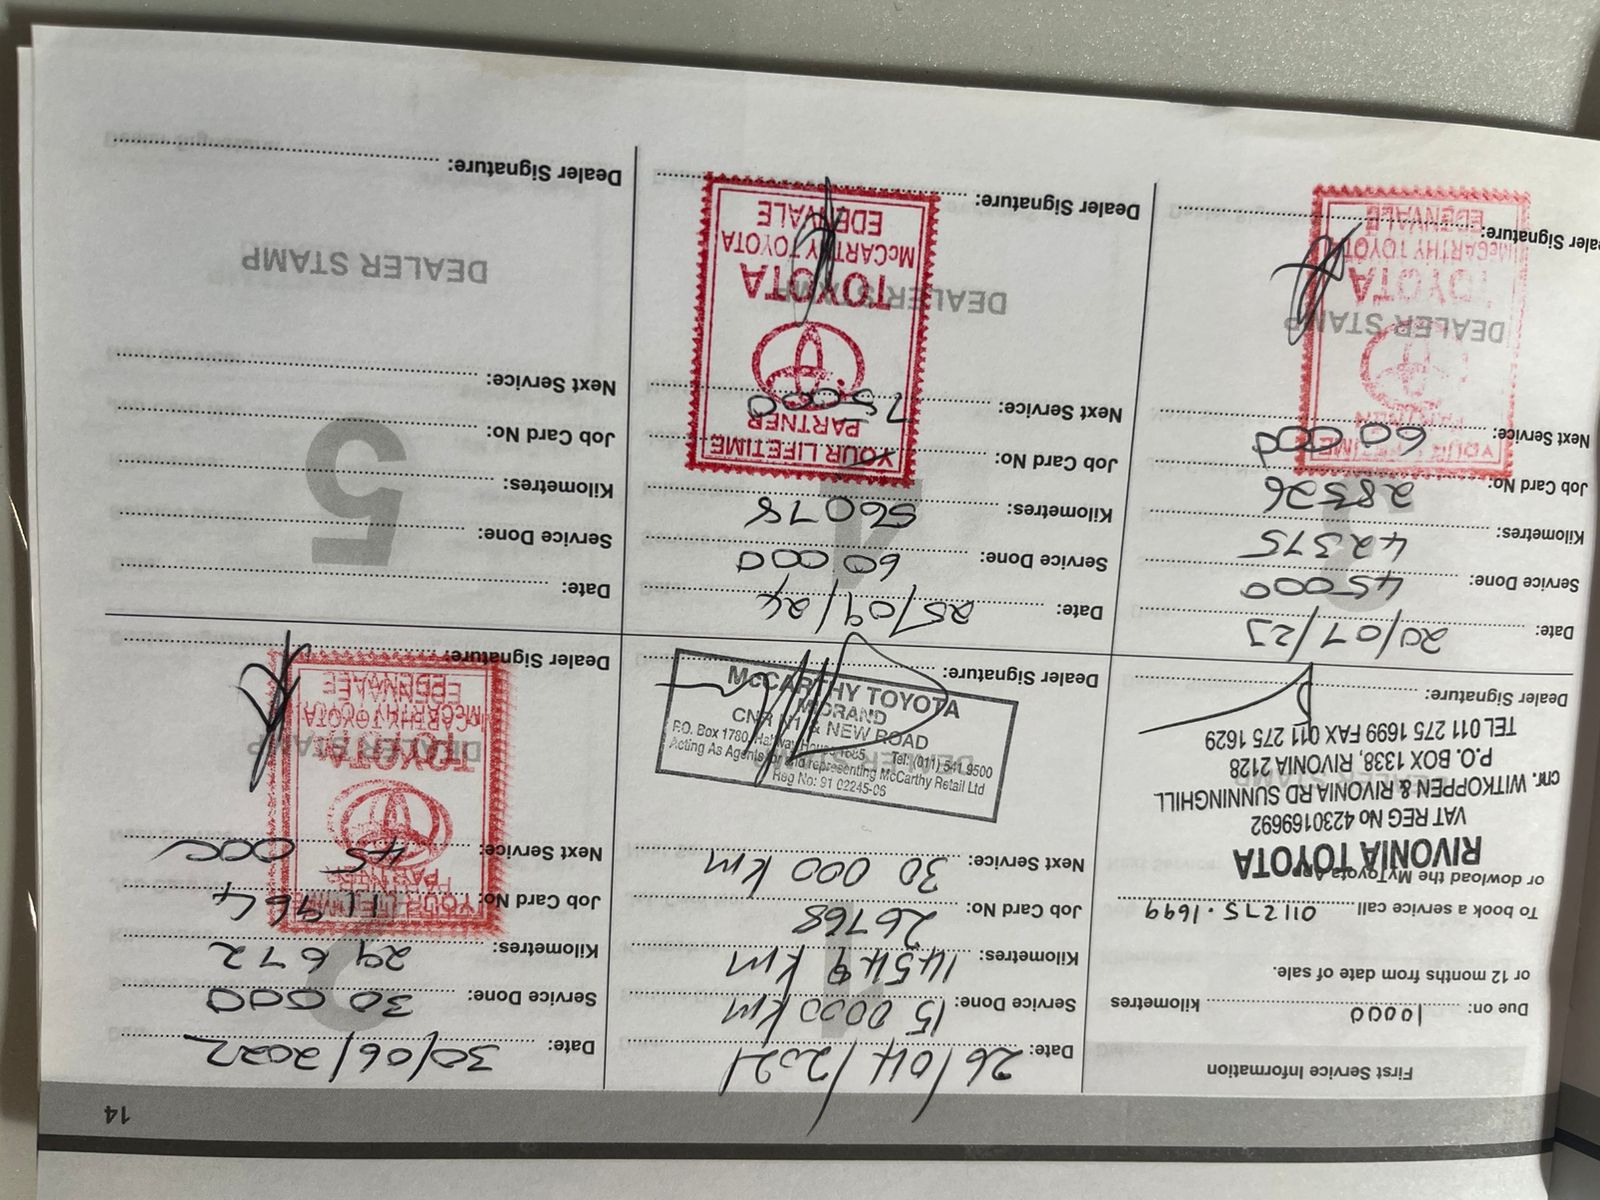 14
First Service Information
Due on: 10000 kilometres
or 12 months from date of sale.
To book a service call 011 275.1699
or dowload the MyToyota
RIVONIA TOYOTA
VAT REG No 4230169692
cnr. WITKOPPEN & RIVONIA RD SUNNINGHILL
P.O. BOX 1338, RIVONIA 2128
TEL 011 275 1699 FAX 011 275 1629
DEALER STAMP
Dealer Signature:
1
Date: 26/04/2021
Service Done: 15 0000 km
Kilometres: 14549 km
Job Card No: 26768
Next Service: 30 000 km
DEALER STAMP
McCARTHY TOYOTA
MIDRAND
CNR N1 & NEW ROAD
P.O. Box 1780, Halfway House 1685 Tel: (011) 541 9500
Acting As Agents for and representing McCarthy Retail Ltd
Reg No: 91 02245-06
Dealer Signature:
2
Date: 30/06/2022
Service Done: 30 000
Kilometres: 29 672
Job Card No: 11964
Next Service: 45 000
YOUR LIFETIME
PARTNER
DEALER STAMP
TOYOTA
McCARTHY TOYOTA
EDENVALE
Dealer Signature:
3
Date: 20/07/23
Service Done 45000
Kilometres: 42375
Job Card No: 28526
Next Service: 60 000
YOUR LIFETIME
PARTNER
DEALER STAMP
TOYOTA
McCARTHY TOYOTA
EDENVALE
Dealer Signature:
4
Date: 25/09/24
Service Done: 60 000
Kilometres: 56078
Job Card No:
Next Service: 75000
YOUR LIFETIME
PARTNER
DEALER STAMP
TOYOTA
McCARTHY TOYOTA
EDENVALE
Dealer Signature:
5
Date:
Service Done:
Kilometres:
Job Card No:
Next Service:
DEALER STAMP
Dealer Signature: